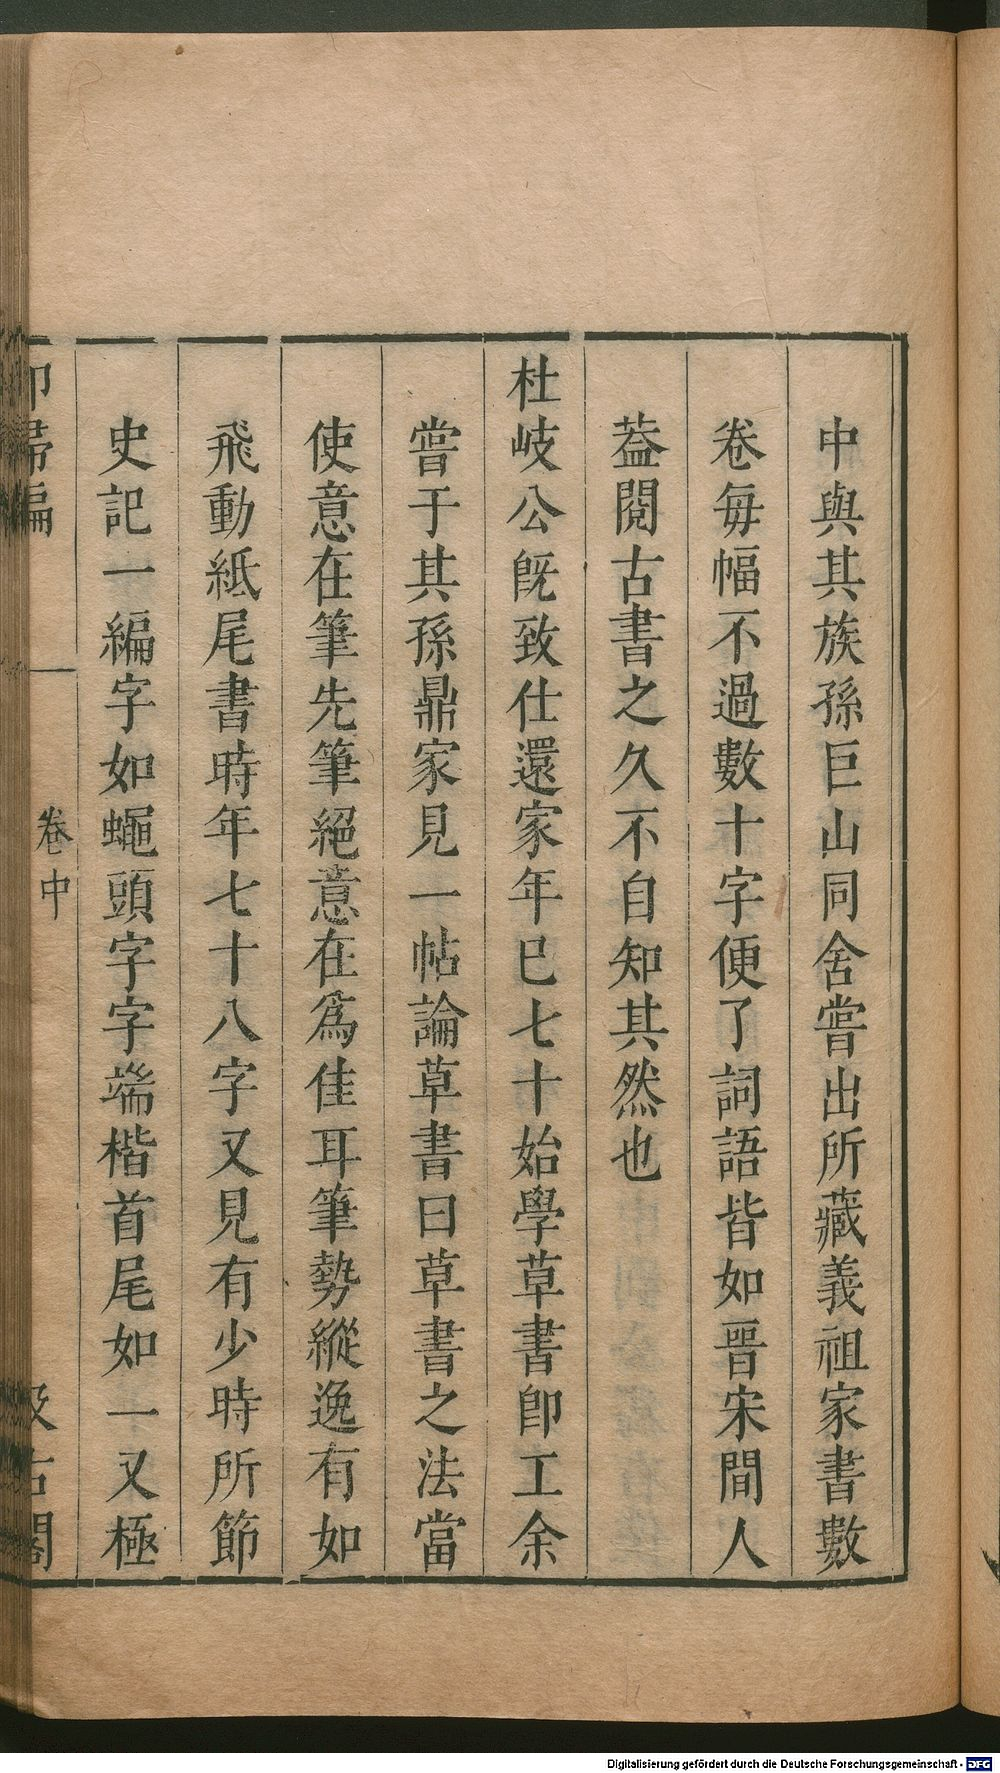 中與其族孫巨山同舍嘗出所藏義祖家書數
卷每幅不過數十字便了詞語皆如晋宋間人
葢閱古書之久不自知其然也
杜岐公旣致仕還家年巳七十始學草書卽工余
嘗于其孫鼎家見一帖論草書曰草書之法當
使意在筆先筆絕意在爲佳耳筆勢縱逸有如
飛動紙尾書時年七十八字又見有少時所節
史記一編字如蠅頭字字端楷首尾如一又極
卷中
古閣
Digitalisierung gefördert durch die Deutsche Forschungsgemeinschaft - DFG